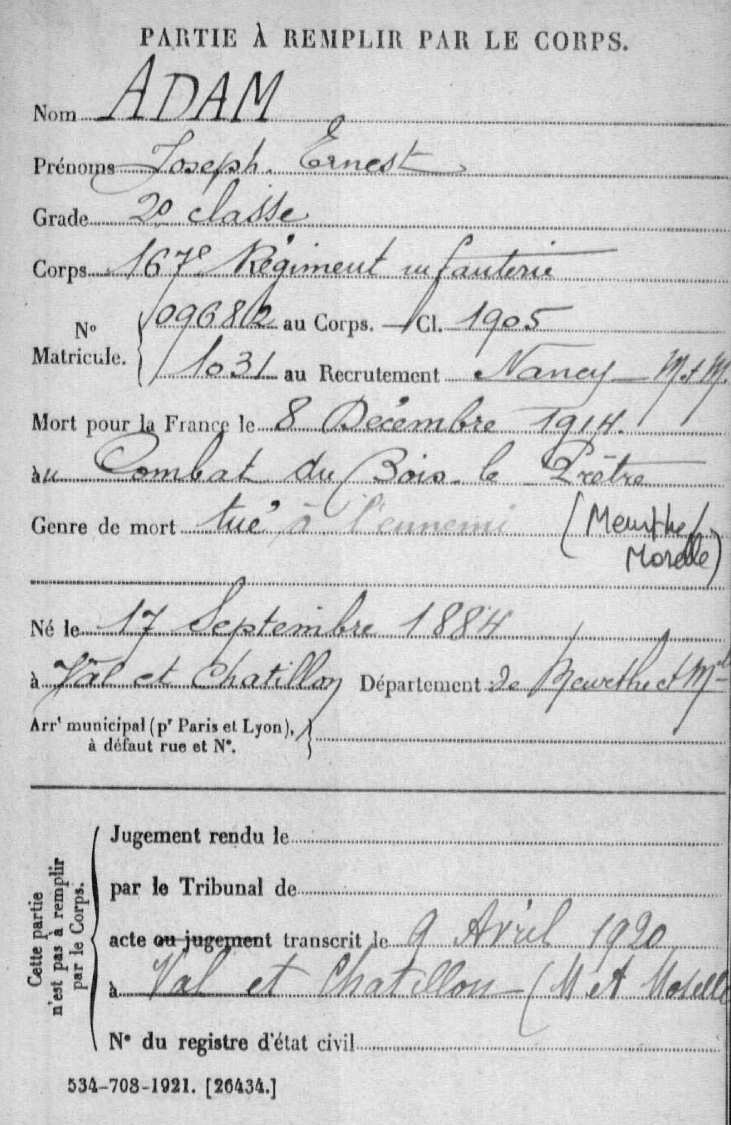 PARTIE À REMPLIR PAR LE CORPS.
Nom ADAM
Prénoms Joseph. Ernest
Grade 2e classe
Corps 167e Régiment infanterie
N° Matricule. 09682 au Corps. — Cl. 1905
1031 au Recrutement Nancy — M et M.
Mort pour la France le 8 Décembre 1914.
au Combat du Bois le Prêtre
Genre de mort tué à l'ennemi (Meurthe/
Moselle)
Né le 17 Septembre 1884
à Val et Chatillon Département de Meurthe et Mlle
Arrt municipal (pr Paris et Lyon),
à défaut rue et N°.
Cette partie n'est pas à remplir par le Corps.
Jugement rendu le
par le Tribunal de
acte ou jugement transcrit le 9 Avril 1920
à Val et Chatillon (M et Moselle
N° du registre d'état civil
534-708-1921. [26434.]